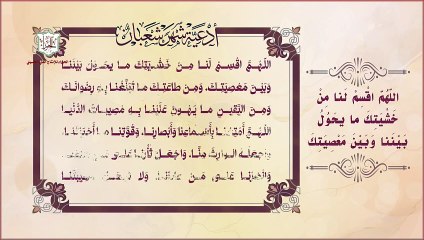 أدعية شهر شعبان
اللَّهُمَّ اقْسِمْ لَنَا مِنْ خَشْيَتِكَ ما يَحُولُ بَيْنَنَا
وَبَيْنَ مَعْصِيَتِكَ، وَمِنْ طَاعَتِكَ ما تُبَلِّغُنَا بِهِ رِضْوانَكَ
وَمِنَ اليَقِينِ ما يَهُونُ عَلَيْنَا بِهِ مُصِيبَاتُ الدُّنْيَا
اللَّهُمَّ أَمْتِعْنَا بِأَسْمَاعِنَا وَأَبْصَارِنَا وَقُوَّتِنَا ما
الوارِثَ مِنَّا، وَاجْعَلْ ثَأْرَنَا
عَلَى مَنْ وَلَا
اللَّهُمَّ اقْسِمْ لَنا مِنْ
خَشْيَتِكَ ما يَحُوْلُ
بَيْنَنا وَبَيْنَ مَعْصِيَتِكَ